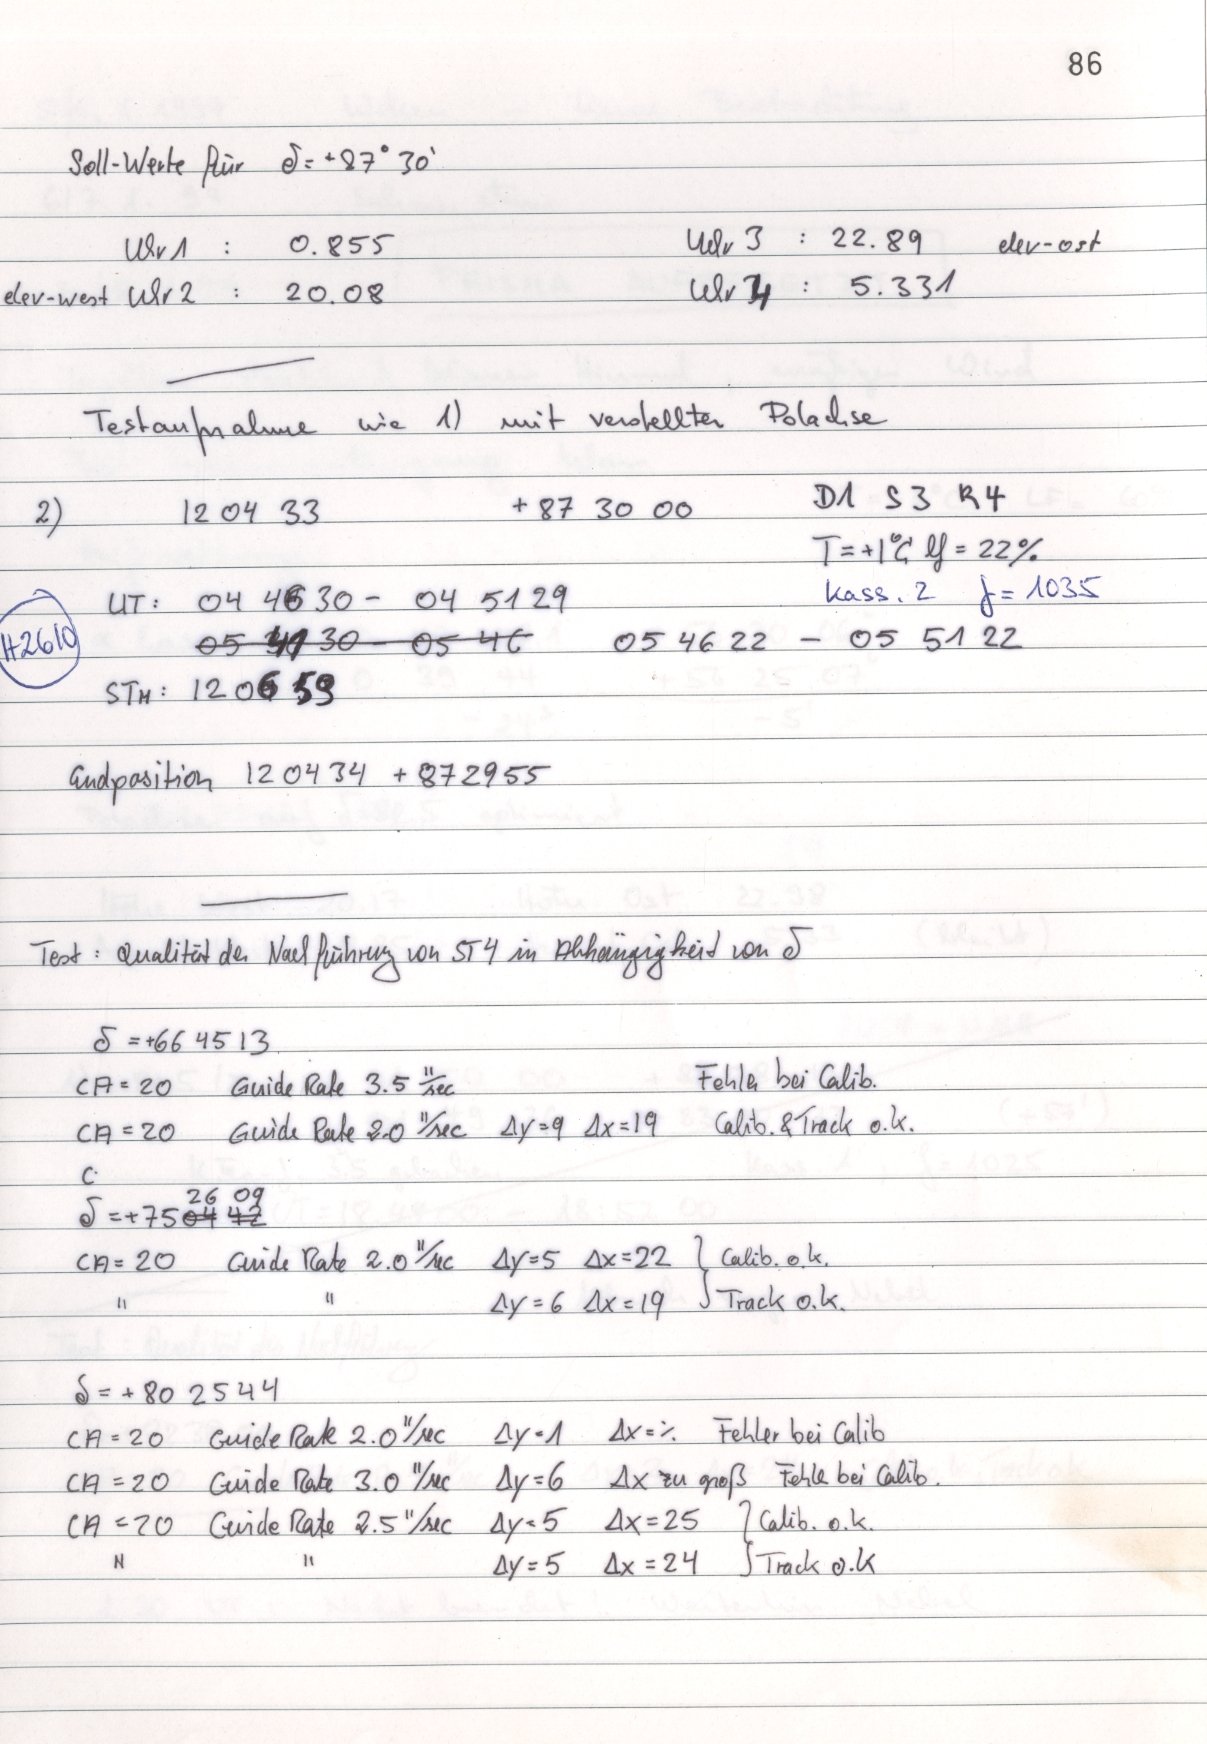 86
Soll-Werte für δ = +87° 30'
Uhr 1 : 0.855 Uhr 3 : 22.89 elev-ost
elev-west Uhr 2 : 20.08 Uhr 4 : 5.331
Testaufnahme wie 1) mit verstellter Polachse
2) 12 04 33 +87 30 00 D1 S3 R4
T=+1°C lf = 22%
UT: 04 46 30 - 04 51 29 Kass. 2 f = 1035
A2610 05 41 30 - 05 46 05 46 22 - 05 51 22
STM: 12 06 59
Endposition 12 04 34 +87 29 55
Test: Qualität der Nachführung von ST4 in Abhängigkeit von δ
δ = +66 45 13
CA = 20 Guide Rate 3.5 "/sec Fehler bei Calib.
CA = 20 Guide Rate 2.0 "/sec Δy=9 Δx=19 Calib. & Track o.k.
C
26 09
δ = +75 04 42
CA = 20 Guide Rate 2.0 "/sec Δy=5 Δx=22 } Calib. o.k.
" " Δy=6 Δx=19 } Track o.k.
δ = +80 25 44
CA = 20 Guide Rate 2.0 "/sec Δy=1 Δx=% Fehler bei Calib
CA = 20 Guide Rate 3.0 "/sec Δy=6 Δx zu groß Fehler bei Calib.
CA = 20 Guide Rate 2.5 "/sec Δy=5 Δx=25 } Calib. o.k.
" " Δy=5 Δx=24 } Track o.k